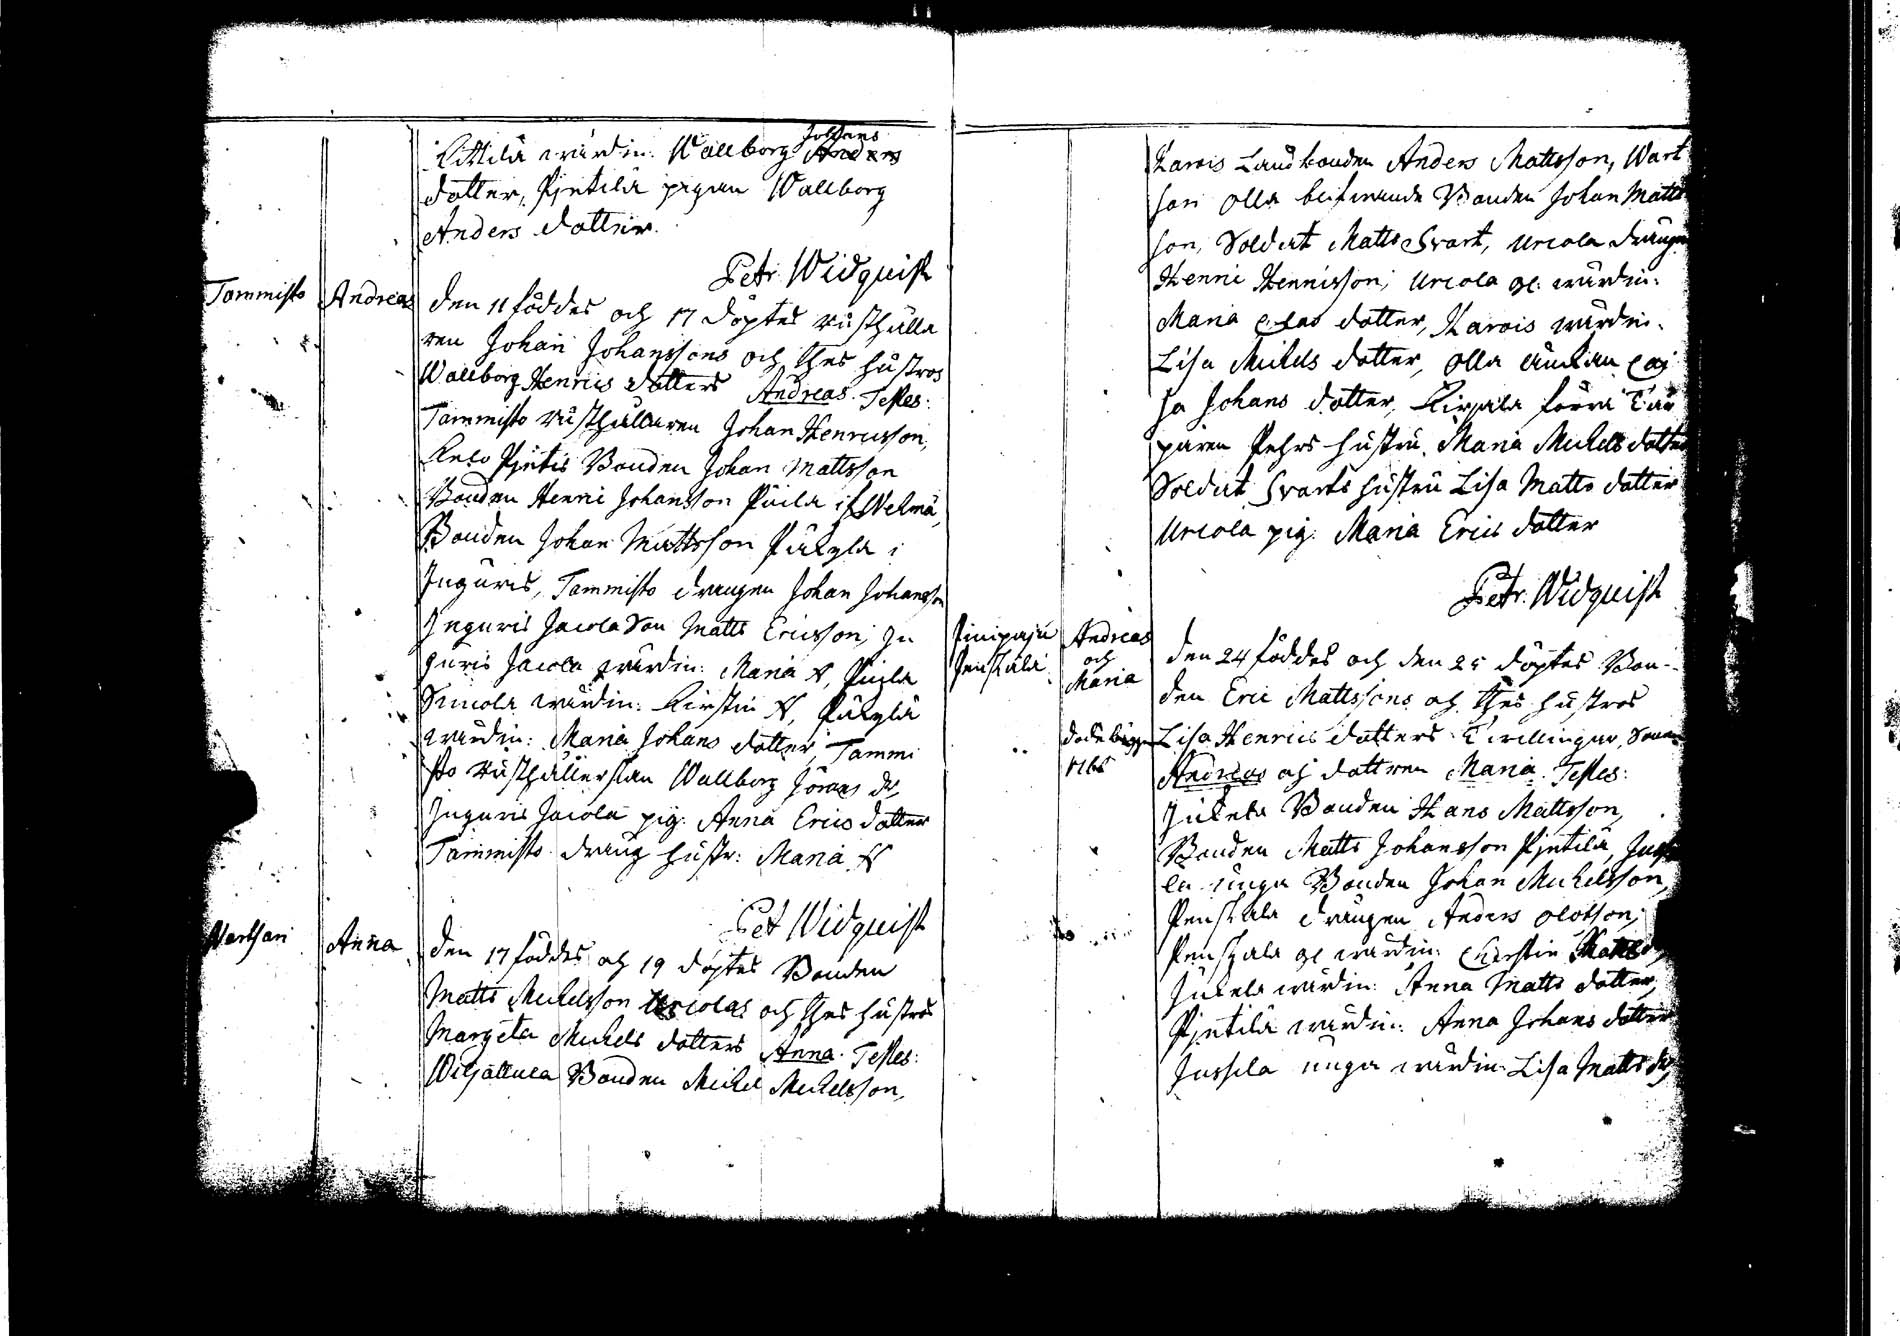 Kittilä wärdin: Wallborg Johans
dotter, Pjntilä pigan Wallborg
Anders dotter.
Petr. Widquist
Tammisto Andreas den 11 föddes och 17 döptes Rusthålla
ren Johan Johanssons och thes hustros
Wallborg Henrics dotters Andreas. Testes:
Tammisto Rusthållaren Johan Henricsson,
Bonden Johan Mattsson
Bonden Henric Johansson
Bonden Johan Mattsson i
Inguris, Tammisto drängen Johan Johansson
Inguris Jacola Son Matts Ericsson, In
guris Jacola wärdin: Maria N, Puila
wärdin: Kirstin N,
wärdin: Maria Johans dotter, Tammi
sto Rusthållerskan Wallborg Jörans dr,
Inguris Jacola pig: Anna Erics dotter
Tammisto dräng hustr: Maria N
Pet Widquist
Wartsari Anna den 17 föddes och 19 döptes Bonden
Matts Michelsson Uricolas och thes hustros
Margeta Michels dotters Anna. Testes:
Bonden Michel Michelsson,
Karois Landbonden Anders Mattsson, Wart
sari Olla Bonden Johan Matts
son, Soldat Matts Svart, Uricola drängen
Henric Henricsson, Uricola gl: wärdin:
Maria Clas dotter, Karois wärdin:
Lisa Michels dotter, Olla änkan Caj
sa Johans dotter, förra
Pehrs hustru Maria Michels dotter
Soldat Svarts hustru Lisa Matts dotter
Uricola pig: Maria Erics dotter
Petr. Widquist
Andreas
och
Maria
döde bägge
den 24 föddes och den 25 döptes Bon-
den Eric Mattssons och thes hustros
Lisa Henrics dotters Twillingar, Sonen
Andreas och dottren Maria. Testes:
Jukela Bonden Hans Mattsson,
Bonden Matts Johansson Pjntilä, Jussi
la unga Bonden Johan Michelsson,
Penskala drängen Anders Olofson,
Penskala gl wärdin: Cherstin Matts dr,
Jukela wärdin: Anna Matts dotter,
Pjntilä wärdin: Anna Johans dotter
Jussila unga wärdin: Lisa Matts dr,